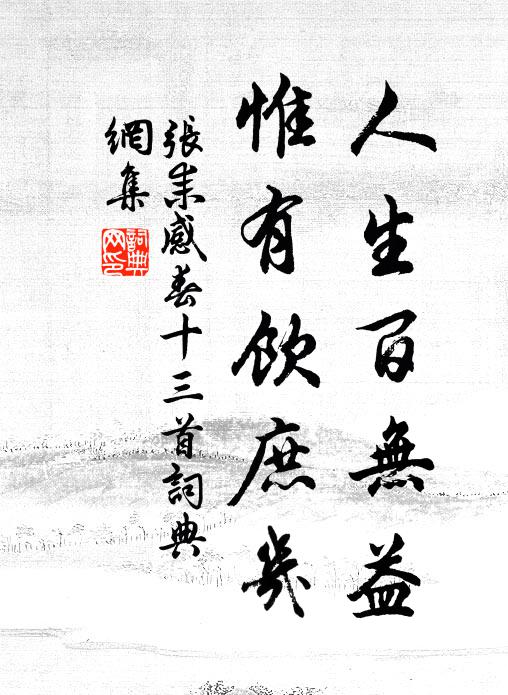 人生百無益
惟有飲庶幾
張耒感春十三首詞典
網集
詞典網印